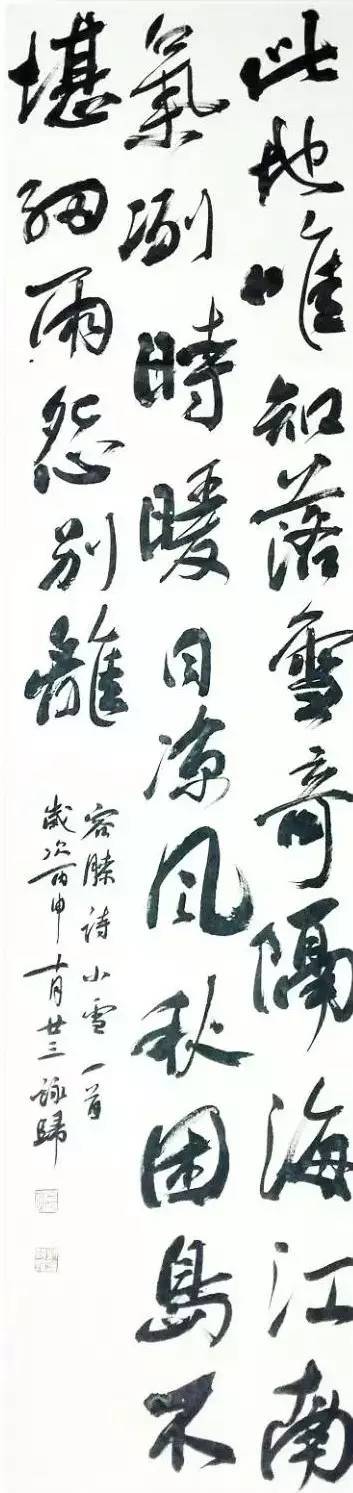 此地唯知落雪奇隔海江南
氣冽時暖日凉風秋困島不
堪細雨怨別離
容膝詩小雪一首
歲次丙申十月廿三詠歸